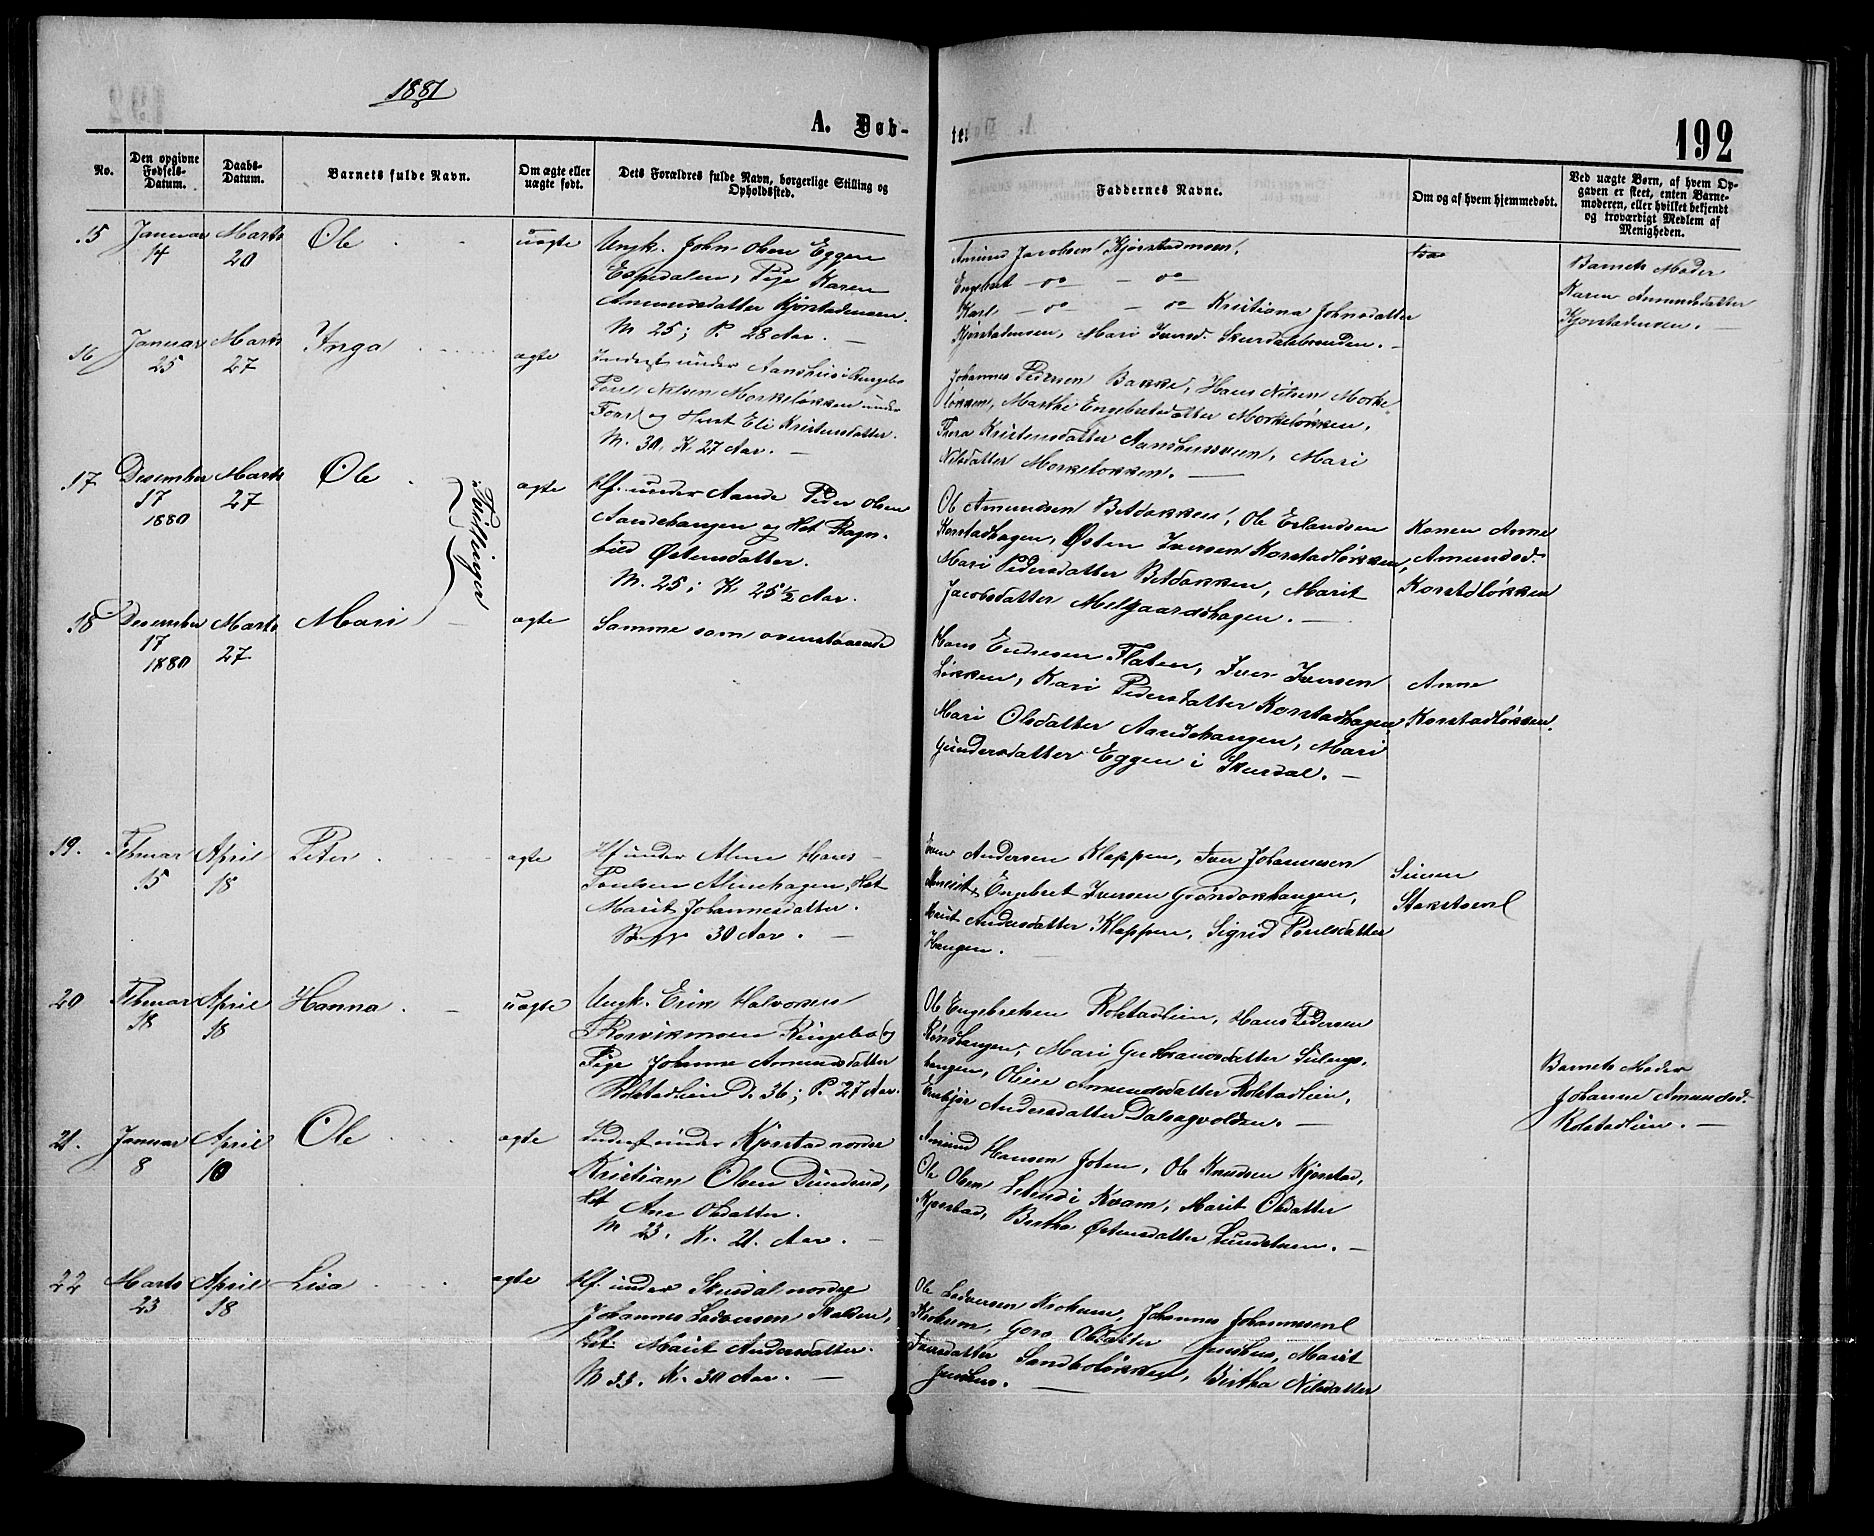 1881
A. Døb-
tet
192
No.
Den opgivne
Fødsels-
Datum.
Daabs-
Datum.
Barnets fulde Navn.
Om ægte eller
uægte født.
Dets Forældres fulde Navn, borgerlige Stilling og
Opholdssted.
Faddernes Navne.
Om og af hvem hjemmedøbt.
Ved uægte Børn, af hvem Op-
gaven er skeet, enten Barne-
moderen, eller hvilket bekjendt
og troværdigt Medlem af
Menigheden.
15 Januar 14 Marts 20 Ole uægte
Ungk. John Olsen Eggen
Espedalen, Pige Karen
Amundsdatter Kjørstadensen.
M 25; P. 28 Aar.
Amund Jacobsen Kjørstadensen,
Engebret
Karl Kristiana Johnsdatter
Kjørstadensen, Mari Iversd.
Barnets Moder
Karen Amundsdatter
Kjorstadensen.
16 Januar 25 Marts 27 Inga ægte
Inderst under Aanshus i Ringebo
Poul Nilsen Morkeløkken under
Foar og Hust Eli Kristensdatter.
M. 30, K 27 Aar.
Johannes Pedersen Bakke, Hans Nilsen Morke-
løkken, Marthe Engebretsdatter Morkeløkken,
Thora Kristensdatter Aanshusveen, Mari
Nilsdatter Morkeløkken.
17 Desember 17 1880 Marts 27 Ole ægte
Tvillinger
Hf. under Aande Peder Olsen
Aandehaugen og Hst Ragn-
hild Østensdatter.
M. 25; K 25 1/2 Aar.
Ole Amundsen Betdokken, Ole Erlandsen
Korstadhagen, Østen Iversen Korstadløkken,
Mari Pedersdatter Betdokken, Marit
Jacobsdatter Melgaardshagen.
Konen Anne
Amundsd.
Korstdløkken
18 Desember 17 1880 Marts 27 Mari ægte
Samme som ovenstaaende
Hans Endresen Flaten, Iver Iversen
Løkken, Kari Pedersdatter Korstadhagen,
Mari Olsdatter Aandehaugen, Mari
Gundersdatter Eggen i Skurdal.
Anne
Korstadløkken.
19. Februar 15 April 18 Peter ægte
Hf under Alme Hans
Poulsen Almehagen, Hst
Marit Johannesdatter.
30 Aar.
Andersen Klappen, Iver Johannesen
Engebret Iversen Grøndokhaugen,
Marit Andersdatter Klappen, Sigrid Poulsdatter
Haugen.
Simen
Stokstad
20 Februar 18 April 18 Hanna uægte
Ungk. Erik Halvorsen
Ringebo og
Pige Johanne Amundsdatter
Rolstadlien D. 36; P. 27 Aar.
Ole Engebretsen Rolstadlien, Hans Pedersen
Mari Gudbrandsdatter
haugen, Oline Amundsdatter Rolstadlien,
Embjør Andersdatter Dalsegvolden.
Barnets Moder
Johanne Amundsd.
Rolstadlien.
21. Januar 8 April 10 Ole ægte
Inderst under Kjørstad nordre
Kristian Olsen
Hst Ane Olsdatter.
M 23. K. 21. Aar.
Amund Hansen Joten, Ole Knudsen Kjørstad,
Ole Olsen i Kvam, Marit Olsdatter
Kjørstad, Berthe Østensdatter
22 Marts 23 April 18 Lisa ægte
Hf. under Skurdal nordre
Johannes Ledvorsen
Hst Marit Andersdatter.
M 33. K. 30 Aar.
Ole Ledvorsen Krokum, Johannes Johannesen
Krokum, Goro Olsdatter Marit
Iversdatter Sandboløkken, Bertha Nilsdatter